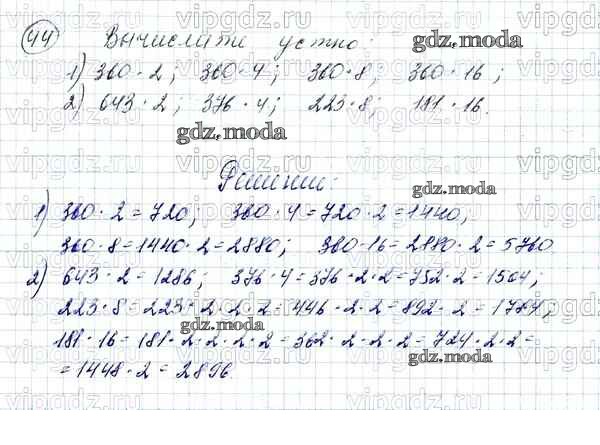 44 Вычислите устно:
1) 360 · 2; 360 · 4; 360 · 8; 360 · 16;
2) 643 · 2; 376 · 4; 223 · 8; 181 · 16.
Решение:
1) 360 · 2 = 720; 360 · 4 = 720 · 2 = 1440;
360 · 8 = 1440 · 2 = 2880; 360 · 16 = 2880 · 2 = 5760
2) 643 · 2 = 1286; 376 · 4 = 376 · 2 · 2 = 752 · 2 = 1504;
223 · 8 = 223 · 2 · 2 · 2 = 446 · 2 · 2 = 892 · 2 = 1784;
181 · 16 = 181 · 2 · 2 · 2 · 2 = 362 · 2 · 2 · 2 = 724 · 2 · 2 =
= 1448 · 2 = 2896.
gdz.moda
gdz.moda
gdz.moda
gdz.moda
gdz.moda
vipgdz.ru